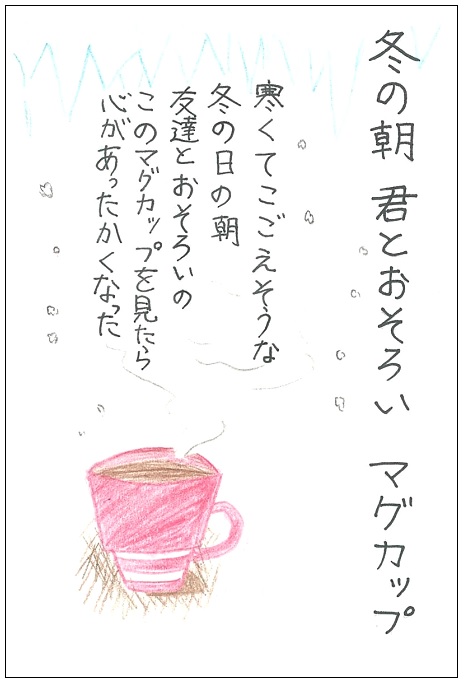 冬の朝 君とおそろい マグカップ
寒くてこごえそうな
冬の日の朝
友達とおそろいの
このマグカップを見たら
心があったかくなった